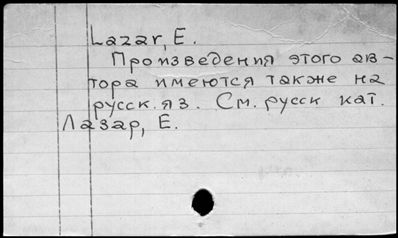 Lazar, E.
Произведения этого ав-
тора имеются также на
русск. яз. См. русск кат.
Лазар, Е.